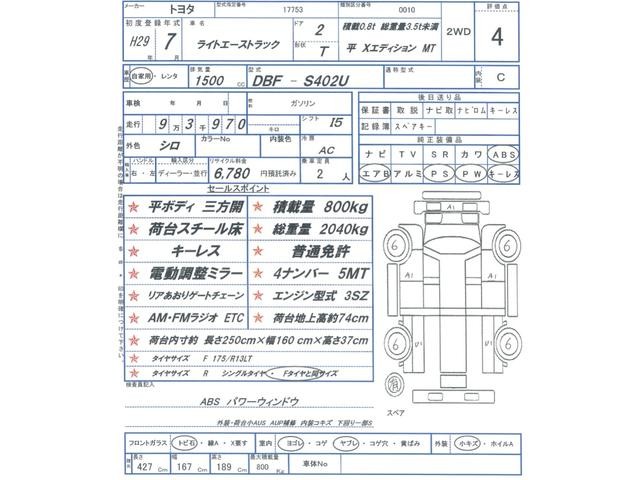 メーカー トヨタ 型式指定番号 17753 種別区分番号 0010 評価点
初度登録年式 車名 ドア 2 積載0.8t 総重量3.5t未満 2WD 4
H29 年 7 月 ライトエーストラック 形状 T 平 Xエディション MT
車歴 自家用・レンタ 排気量 1500 CC 型式 DBF - S402U 通称型式 内装 C
車検 年 月 日 燃料 ガソリン 後日送り品
走行 9万3千970 キロ シフト I5 保証書 取説 ナビ取 ナビロム キーレス
記録簿 スペアキー
外色 シロ カラーNo 内装色 冷房 AC 純正装備品
ハンドル 輸入区分 リサイクル料金 乗車定員 ナビ TV SR カワ ABS
右・左 ディーラー・並行 6,780 円預託済み 2 人 エアB アルミ PS PW キーレス
セールスポイント
平ボディ 三方開 積載量 800kg
荷台スチール床 総重量 2040kg
キーレス 普通免許
電動調整ミラー 4ナンバー 5MT
リアあおりゲートチェーン エンジン型式 3SZ
AM・FMラジオ ETC 荷台地上高約74cm
荷台内寸約 長さ250cm×幅160cm×高さ37cm
タイヤサイズ F 175/R13LT
タイヤサイズ R シングルタイヤ・Fタイヤと同サイズ
検査員記入
ABS パワーウィンドウ
外装・荷台小AUS AUP補修 内装コキズ 下回り一部S
A1
6 6
A1 A1
6 6
有
スペア
フロントガラス トビ石・線A・X要す 室内 ヨゴレ・コゲ ヤブレ・コゲ穴・黄ばみ 外装 小キズ・ホイルA
長さ 427 Cm 幅 167 Cm 高さ 189 Cm 最大積載量 800 Kg 車体No